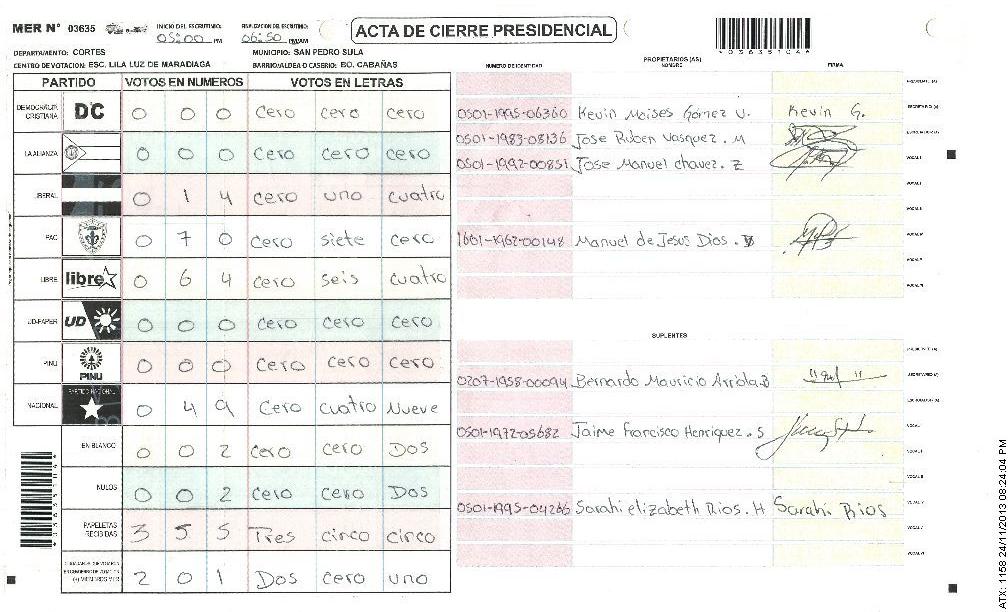 MER Nº 03635
INICIO DEL ESCRUTINIO: 05:00 PM
FINALIZACION DEL ESCRUTINIO: 06:50 PM/AM
ACTA DE CIERRE PRESIDENCIAL
DEPARTAMENTO: CORTES MUNICIPIO: SAN PEDRO SULA
CENTRO DE VOTACION: ESC. LILA LUZ DE MARADIAGA BARRIO/ALDEA O CASERIO: BO. CABAÑAS
PARTIDO VOTOS EN NUMEROS VOTOS EN LETRAS
DEMOCRACIA CRISTIANA DC 0 0 0 Cero cero cero
LA ALIANZA 0 0 0 Cero cero cero
LIBERAL 0 1 4 Cero uno cuatro
PAC 0 7 0 Cero siete cero
LIBRE libre 0 6 4 cero seis cuatro
UD-FAPER UD 0 0 0 cero cero cero
PINU PINU 0 0 0 Cero cero cero
NACIONAL PARTIDO NACIONAL 0 4 9 Cero cuatro Nueve
EN BLANCO 0 0 2 Cero cero Dos
NULOS 0 0 2 Cero cero Dos
PAPELETAS RECIBIDAS 3 5 5 Tres cinco cinco
(+) MIEMBROS MER 2 0 1 Dos cero uno
PROPIETARIOS (AS)
NUMERO DE IDENTIDAD NOMBRE FIRMA
0501-1995-06360 Kevin Moises Gómez V. Kevin G.
0501-1983-08136 Jose Ruben Vasquez. M
0501-1992-00851 Jose Manuel chavez. Z
1601-1962-00148 Manuel de Jesus Dios.
SUPLENTES
0207-1958-00094 Bernardo Mauricio Arriola.B
0501-1972-05682 Jaime Francisco Henriquez. S
0501-1995-04266 Sarahi elizabeth Rios. H Sarahi Rios
ATX: 1158 24/11/2013 08:24:04 PM